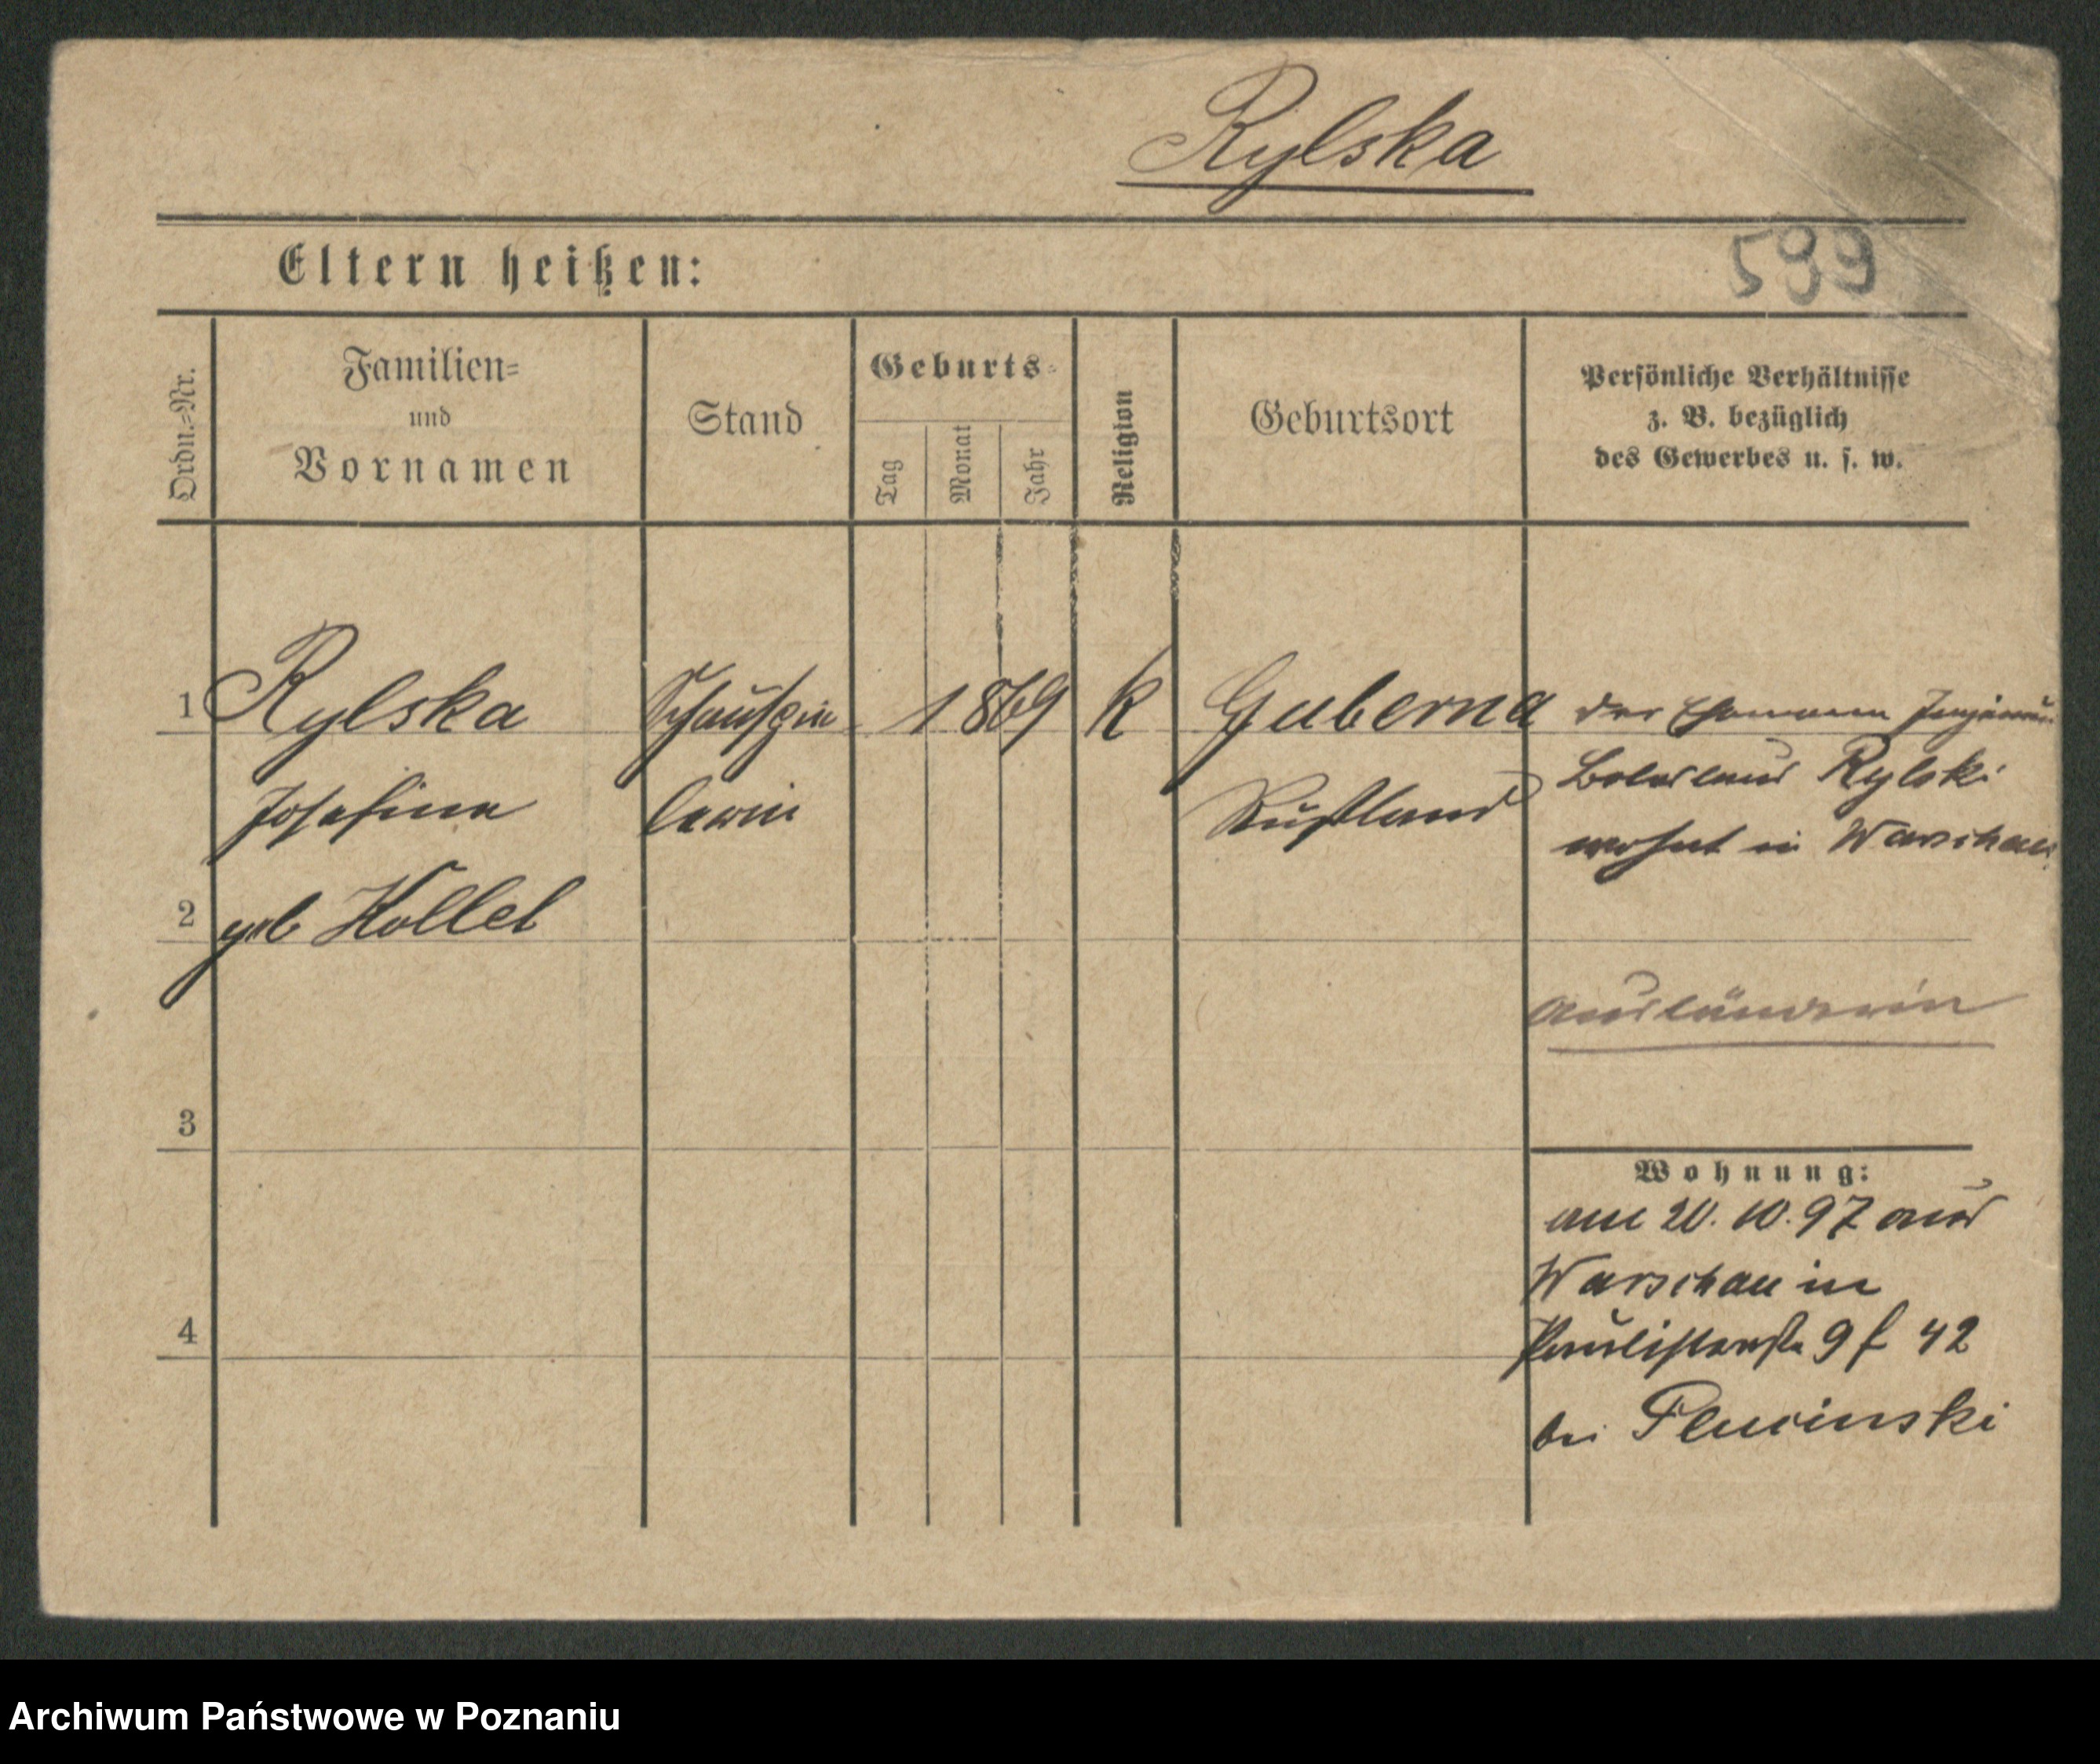 Rylska
Eltern heißen:
599
Ordn.-Nr.
Familien-
und
Vornamen
Stand
Geburts-
Tag
Monat
Jahr
Religion
Geburtsort
Persönliche Verhältnisse
z. B. bezüglich
des Gewerbes u. s. w.
1 Rylska Schauspie 1869 k Guberna der Ehemann Ingenieur
Josefina lerin Rußland Boleslaus Rylski
wohnt in Warschau
2 geb Kollel
Ausländerin
3
Wohnung:
am 20. 10. 97 aus
Warschau in
4 9 f 42
bei Plucinski
Archiwum Państwowe w Poznaniu